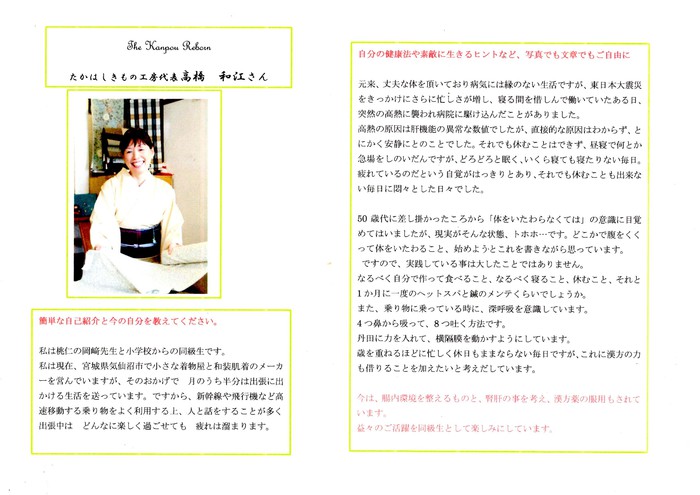 The Kanpou Reborn
たかはしきもの工房代表高橋 和江さん
簡単な自己紹介と今の自分を教えてください。
私は桃仁の岡崎先生と小学校からの同級生です。
私は現在、宮城県気仙沼市で小さな着物屋と和装肌着のメーカ
ーを営んでいますが、そのおかげで 月のうち半分は出張に出
かける生活を送っています。ですから、新幹線や飛行機など高
速移動する乗り物をよく利用する上、人と話をすることが多く
出張中は どんなに楽しく過ごせても 疲れは溜まります。
自分の健康法や素敵に生きるヒントなど、写真でも文章でもご自由に
元来、丈夫な体を頂いており病気には縁のない生活ですが、東日本大震災
をきっかけにさらに忙しさが増し、寝る間を惜しんで働いていたある日、
突然の高熱に襲われ病院に駆け込んだことがありました。
高熱の原因は肝機能の異常な数値でしたが、直接的な原因はわからず、と
にかく安静にとのことでした。それでも休むことはできず、昼寝で何とか
急場をしのいだんですが、どろどろと眠く、いくら寝ても寝たりない毎日。
疲れているのだという自覚がはっきりとあり、それでも休むことも出来な
い毎日に悶々とした日々でした。
50 歳代に差し掛かったころから「体をいたわらなくては」の意識に目覚
めてはいましたが、現実がそんな状態、トホホ…です。どこかで腹をくく
って体をいたわること、始めようとこれを書きながら思っています。
ですので、実践している事は大したことではありません。
なるべく自分で作って食べること、なるべく寝ること、休むこと、それと
1か月に一度のヘットスパと鍼のメンテくらいでしょうか。
また、乗り物に乗っている時に、深呼吸を意識しています。
4つ鼻から吸って、8つ吐く方法です。
丹田に力を入れて、横隔膜を動かすようにしています。
歳を重ねるほどに忙しく休日もままならない毎日ですが、これに漢方の力
も借りることを加えたいと考えだしています。
今は、腸内環境を整えるものと、腎肝の事を考え、漢方薬の服用もされて
います。
益々のご活躍を同級生として楽しみにしています。